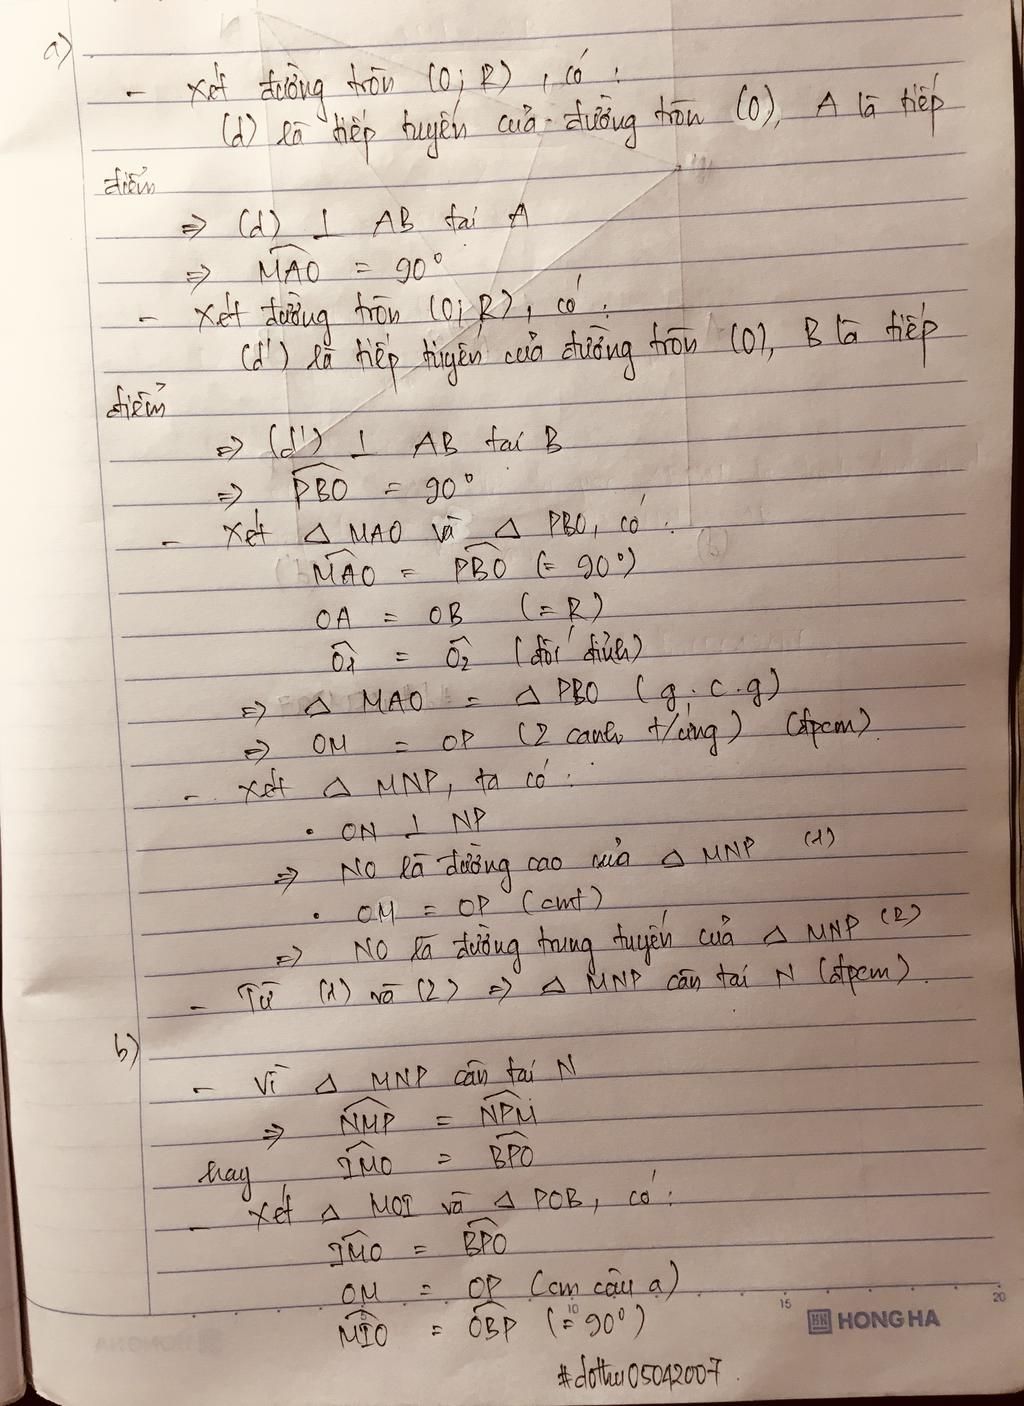 a)
- Xét đường tròn (O; R), có:
(d) là tiếp tuyến của đường tròn (O), A là tiếp
điểm
⇒ (d) ⊥ AB tại A
⇒ \widehat{MAO} = 90°
- Xét đường tròn (O; R), có:
(d') là tiếp tuyến của đường tròn (O), B là tiếp
điểm
⇒ (d') ⊥ AB tại B
⇒ \widehat{PBO} = 90°
- Xét Δ MAO và Δ PBO, có:
\widehat{MAO} = \widehat{PBO} (= 90°)
OA = OB (= R)
\widehat{O1} = \widehat{O2} (đối đỉnh)
⇒ Δ MAO = Δ PBO (g.c.g)
⇒ OM = OP (2 cạnh t/ứng) (đpcm)
- Xét Δ MNP, ta có:
• ON ⊥ NP
⇒ NO là đường cao của Δ MNP (1)
• OM = OP (cmt)
⇒ NO là đường trung tuyến của Δ MNP (2)
- Từ (1) và (2) ⇒ Δ MNP cân tại N (đpcm).
b)
- Vì Δ MNP cân tại N
⇒ \widehat{NMP} = \widehat{NPM}
hay \widehat{IMO} = \widehat{BPO}
- Xét Δ MOI và Δ POB, có:
\widehat{IMO} = \widehat{BPO}
OM = OP (cm câu a)
\widehat{MIO} = \widehat{OBP} (= 90°)
10 15 20
HONG HA
#dothu05042007